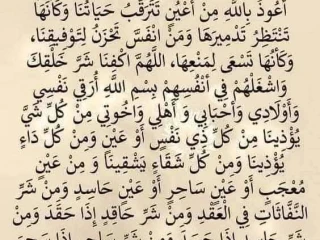 أَعُوذُ بِاللَّهِ مِنْ أَعْيُنٍ تَتَرَقَّبُ حَيَاتَنَا وَكَأَنَّهَا
تَنْتَظِرُ تَدْمِيرَهَا وَمَنْ انْفَسَ تَحْزَنُ لِتَوْفِيقِنَا،
وَكَأَنَّهَا تَسْعَى لِمَنْعِهَا، اللَّهُمَّ اكْفِنَا شَرَّ خَلْقِكَ
وَاشْغَلْهُمْ فِي أَنْفُسِهِمْ بِسْمِ اللَّهِ أُرَقِي نَفْسِي
وَأَوْلَادِي وَأَحْبَابِي وَ أَهْلِي وَاخْوتِي مِنْ كُلِّ شَيَّ
يُؤْذِينَا مِنْ كُلِّ ذِي نَفْسٍ أَوْ عَيْنٍ وَمِنْ كُلِّ دَاءٍ
يُؤْذِينَا وَمِنْ كُلِّ شَقَاءٍ يَشْقِينَا وَ مِنْ عَيْنِ
مُعْجَبٍ أَوْ عَيْنِ سَاحِرٍ أَوْ عَيْنِ حَاسِدٍ وَمِنْ شَرِّ
النَّفَّاثَاتِ فِي الْعُقَدِ وَمِنْ شَرِّ حَاقِدٍ إِذَا حَقَدَ وَمِنْ
شَرِّ حَاسِدٍ إِذَا حَسَدَ وَمِنْ شَرِّ سَاحِرٍ إِذَا سَحَرَ